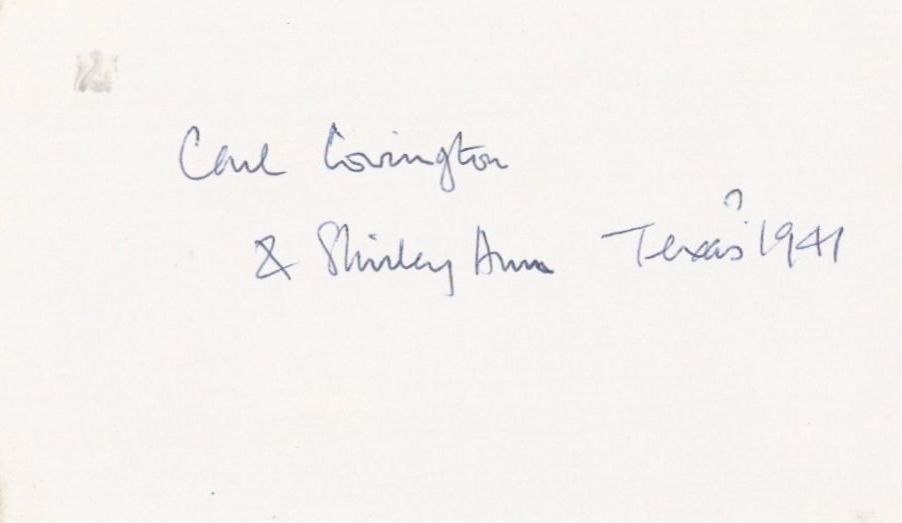 Carl Covington
& Shirley Ann Texas? 1941